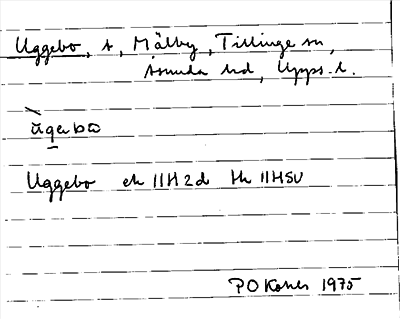 Uggebo, t, Mälby, Tillinge sn,
Åsunda hd, Upps. l.
ùgɐbω
Uggebo ek 11H2d hk 11HSV
P O 1975